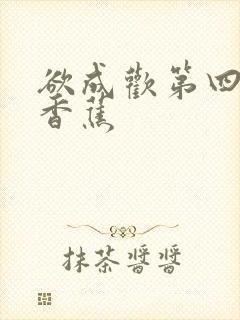 欲成歡第四
香蕉
抹茶醬醬